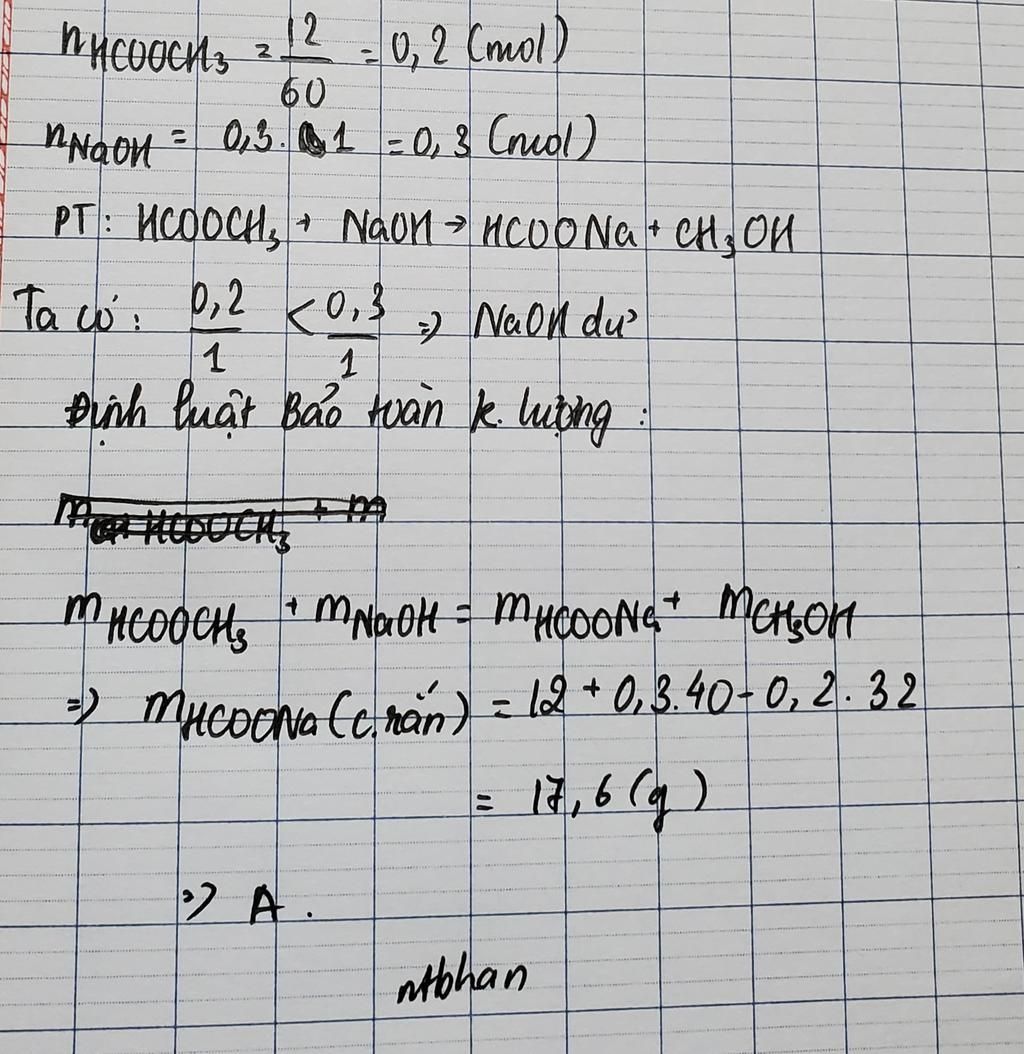 nHCOOCH3 = 12/60 = 0,2 (mol)
nNaOH = 0,3.1 = 0,3 (mol)
PT: HCOOCH3 + NaOH → HCOONa + CH3OH
Ta có: 0,2/1 < 0,3/1 => NaOH dư
Định luật Bảo toàn k. lượng:
m HCOOCH3 + m
mHCOOCH3 + mNaOH = mHCOONa + mCH3OH
=> mHCOONa (c.rắn) = 12 + 0,3.40 - 0,2.32
= 17,6 (g)
=> A.
ntbhan